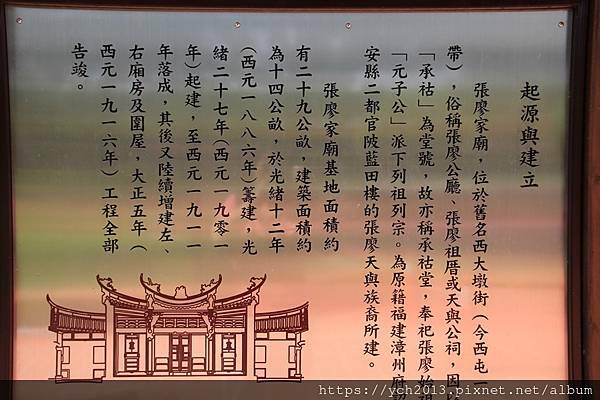 起源與建立
張廖家廟，位於舊名西大墩街（今西屯一
帶），俗稱張廖公廳、張廖祖厝或天與公祠，因
「承祜」為堂號，故亦稱承祜堂，奉祀張廖始祖
「元子公」派下列祖列宗。為原籍福建漳州府
安縣二都官陂藍田樓的張廖天與族裔所建。
張廖家廟基地面積約
有二十九公畝，建築面積約
為十四公畝，於光緒十二年
（西元一八八六年）籌建，光
緒二十七年（西元一九零一
年）起建，至西元一九一一
年落成，其後又陸續增建左、
右廂房及圍屋，大正五年（
西元一九一六年）工程全部
告竣。
https://ych2013.pixnet.net/album